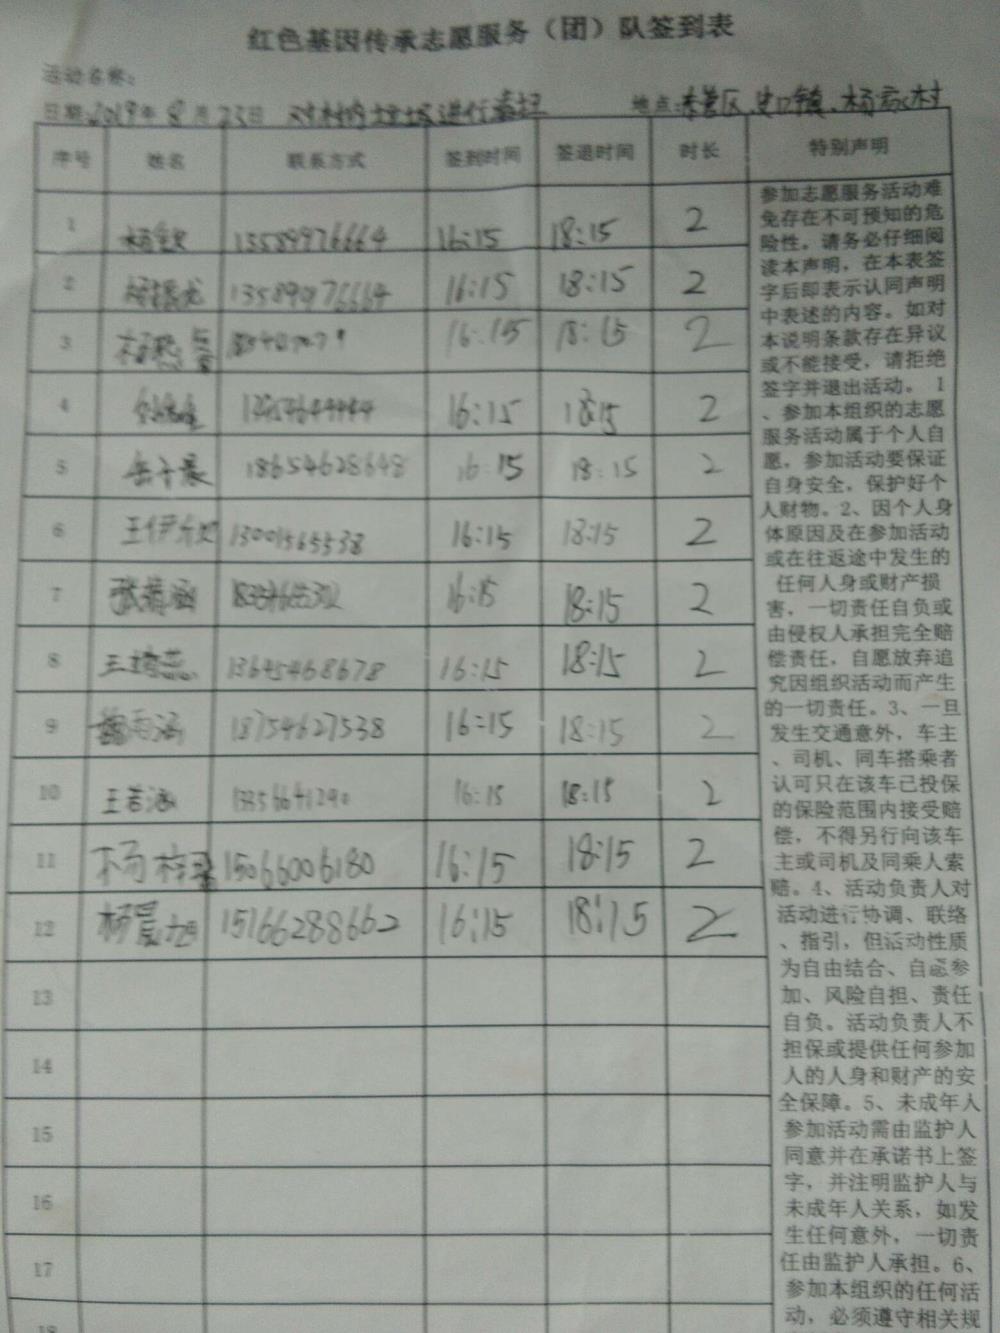 红色基因传承志愿服务（团）队签到表
活动名称：
日期：2019年8月23日 对村内 进行 地点： 区、史口镇、杨家村
序号 姓名 联系方式 签到时间 签退时间 时长 特别声明
1 13589976664 16:15 18:15 2
2 16:15 18:15 2
3 16:15 18:15 2
4 16:15 18:15 2
5 18654628648 16:15 18:15 2
6 13001565538 16:15 18:15 2
7 16:15 18:15 2
8 13645468678 16:15 18:15 2
9 18754627538 16:15 18:15 2
10 王若涵 16:15 18:15 2
11 杨 15066006180 16:15 18:15 2
12 杨晨旭 15166288662 16:15 18:15 2
13
14
15
16
17
18
参加志愿服务活动难
免存在不可预知的危
险性。请务必仔细阅
读本声明，在本表签
字后即表示认同声明
中表述的内容。如对
本说明条款存在异议
或不能接受，请拒绝
签字并退出活动。 1
、参加本组织的志愿
服务活动属于个人自
愿，参加活动要保证
自身安全，保护好个
人财物。2、因个人身
体原因及在参加活动
或在往返途中发生的
任何人身或财产损
害，一切责任自负或
由侵权人承担完全赔
偿责任，自愿放弃追
究因组织活动而产生
的一切责任。3、一旦
发生交通意外，车主
、司机、同车搭乘者
认可只在该车已投保
的保险范围内接受赔
偿，不得另行向该车
主或司机及同乘人索
赔。4、活动负责人对
活动进行协调、联络
、指引，但活动性质
为自由结合、自愿参
加、风险自担、责任
自负。活动负责人不
担保或提供任何参加
人的人身和财产的安
全保障。5、未成年人
参加活动需由监护人
同意并在承诺书上签
字，并注明监护人与
未成年人关系，如发
生任何意外，一切责
任由监护人承担。6、
参加本组织的任何活
动，必须遵守相关规